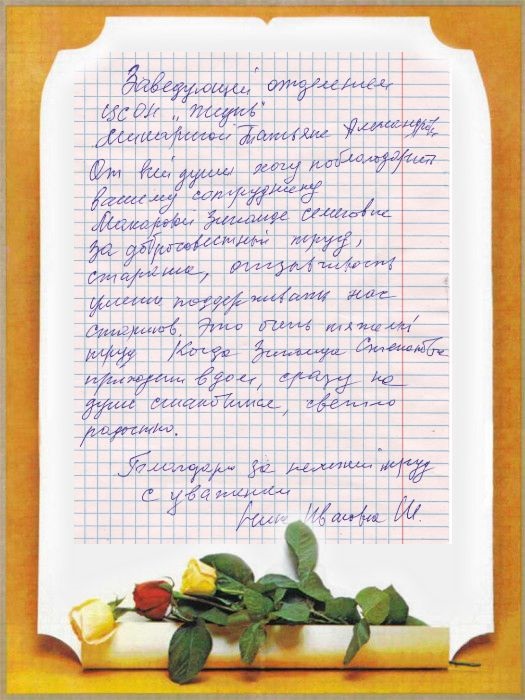 Заведующей отделением
ЦСОН „Жизнь"
Татьяне
От всей души хочу поблагодарить
вашему сотруднику
Макаровы Зинаиде
за добросовестный труд,
старание, отзывчивость
умение поддерживать нас
стариков. Это очень тяжёлый
труд Когда Зинаида Степановна
приходит в дом, сразу на
душе становится, светло
радостно.
Благодарю за нелегкий труд
с уважением
Ивановна Ш.